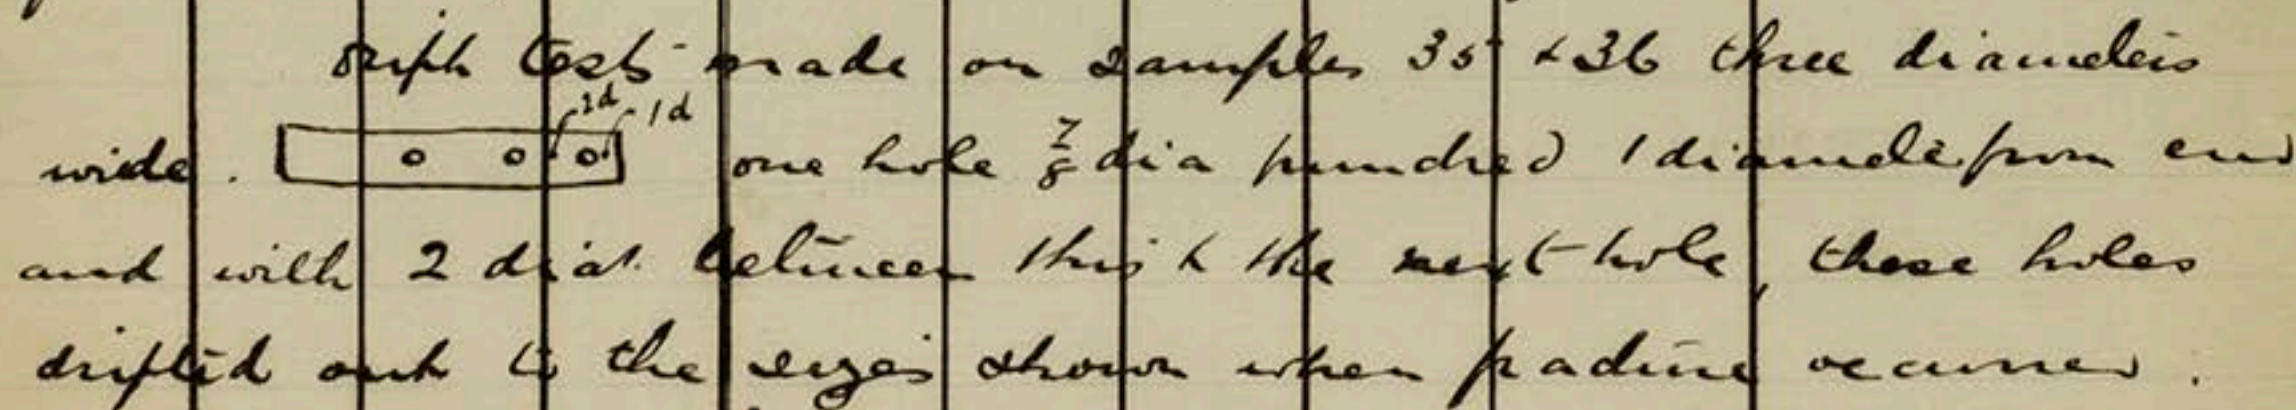 Drift tests made on samples 35 & 36 three diameters
2d 1d
wide. one hole 7/8 dia punched 1 diameter from end
and with 2 dias. between this & the next hole, these holes
drifted out to the sizes shown when fracture occurred.